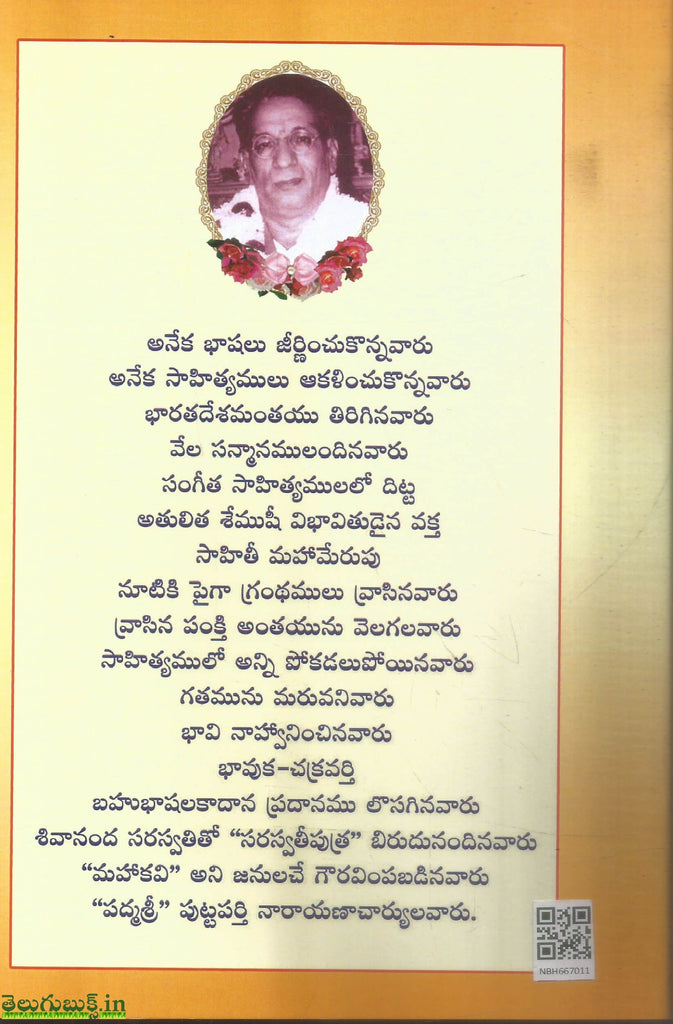 అనేక భాషలు జీర్ణించుకొన్నవారు
అనేక సాహిత్యములు ఆకళించుకొన్నవారు
భారతదేశమంతయు తిరిగినవారు
వేల సన్మానములందినవారు
సంగీత సాహిత్యములలో దిట్ట
అతులిత శేముషీ విభావితుడైన వక్త
సాహితీ మహామేరుపు
నూటికి పైగా గ్రంథములు వ్రాసినవారు
వ్రాసిన పంక్తి అంతయును వెలగలవారు
సాహిత్యములో అన్ని పోకడలుపోయినవారు
గతమును మరువనివారు
భావి నాహ్వానించినవారు
భావుక-చక్రవర్తి
బహుభాషలకాదాన ప్రదానము లొసగినవారు
శివానంద సరస్వతితో “సరస్వతీపుత్ర” బిరుదునందినవారు
“మహాకవి” అని జనులచే గౌరవింపబడినవారు
“పద్మశ్రీ” పుట్టపర్తి నారాయణాచార్యులవారు.
NBH667011
తెలుగుబుక్స్.in